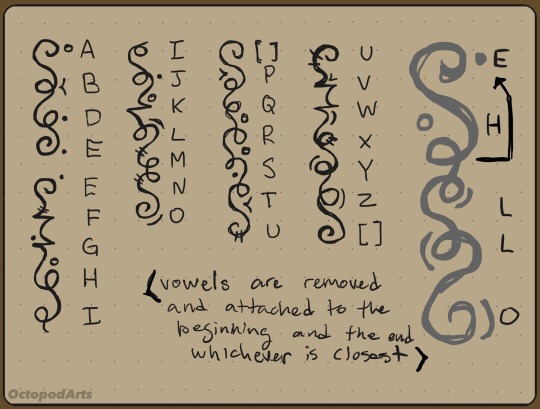 A
B
D
E
E
F
G
H
I
I
J
K
L
M
N
O
[]
P
Q
R
S
T
U
U
V
W
X
Y
Z
[]
E
H
L
L
O
vowels are removed
and attached to the
beginning and the end
whichever is closest
OctopodArts